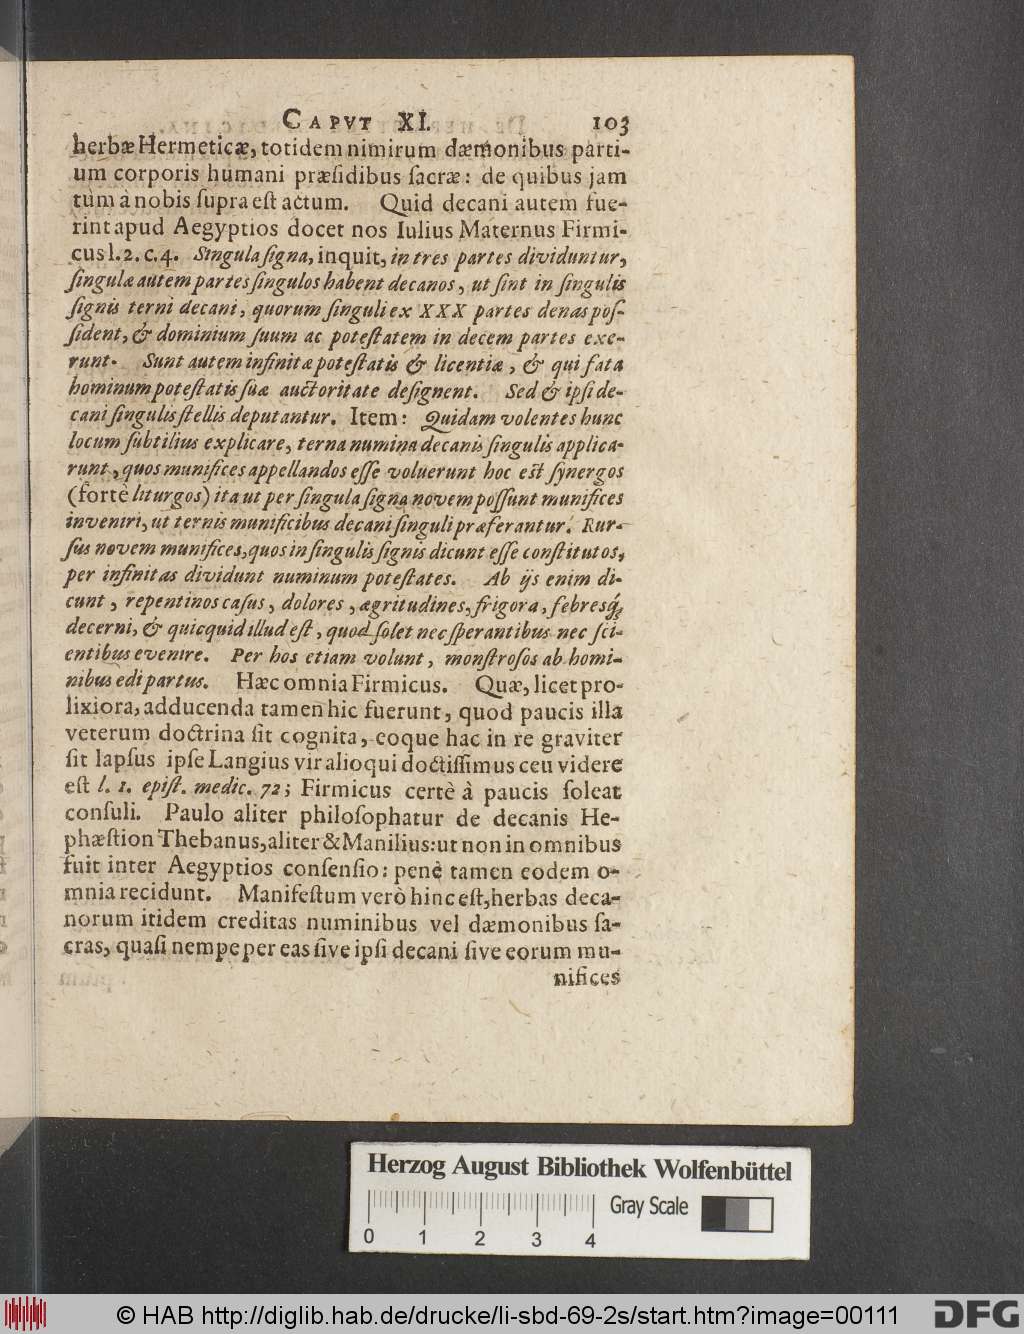 CAPVT XI. 103
herbæ Hermeticæ, totidem nimirum dæmonibus parti-
um corporis humani præſidibus ſacræ: de quibus jam
tùm à nobis ſupra eſt actum. Quid decani autem fue-
rint apud Aegyptios docet nos Iulius Maternus Firmi-
cus l. 2. c. 4. Singula ſigna, inquit, in tres partes dividuntur,
ſingulæ autem partes ſingulos habent decanos, ut ſint in ſingulis
ſignis terni decani, quorum ſinguli ex XXX partes denas poſ-
ſident, & dominium ſuum ac poteſtatem in decem partes exe-
runt. Sunt autem infinitæ poteſtatis & licentiæ, & qui fata
hominum poteſtatis ſuæ auctoritate deſignent. Sed & ipſi de-
cani ſingulis ſtellis deputantur. Item: Quidam volentes hunc
locum ſubtilius explicare, terna numina decanis ſingulis applica-
runt, quos munifices appellandos eſſe voluerunt hoc est ſynergos
(fortè liturgos) ita ut per ſingula ſigna novem poſſunt munifices
inveniri, ut ternis munificibus decani ſinguli præferantur. Rur-
ſus novem munifices, quos in ſingulis ſignis dicunt eſſe conſtitutos,
per infinitas dividunt numinum poteſtates. Ab ijs enim di-
cunt, repentinos caſus, dolores, ægritudines, frigora, febresq́;
decerni, & quicquid illud eſt, quod ſolet nec ſperantibus nec ſci-
entibus evenire. Per hos etiam volunt, monſtroſos ab homi-
nibus edi partus. Hæc omnia Firmicus. Quæ, licet pro-
lixiora, adducenda tamen hic fuerunt, quod paucis illa
veterum doctrina ſit cognita, eoque hac in re graviter
ſit lapſus ipſe Langius vir alioqui doctiſſimus ceu videre
eſt l. 1. epiſt. medic. 72; Firmicus certè à paucis ſoleat
conſuli. Paulo aliter philoſophatur de decanis He-
phæſtion Thebanus, aliter & Manilius: ut non in omnibus
fuit inter Aegyptios conſenſio: penè tamen eodem o-
mnia recidunt. Manifeſtum verò hinc eſt, herbas deca-
norum itidem creditas numinibus vel dæmonibus ſa-
cras, quaſi nempe per eas ſive ipſi decani ſive eorum mu-
nifices
Herzog August Bibliothek Wolfenbüttel
Gray Scale
0 1 2 3 4
© HAB http://diglib.hab.de/drucke/li-sbd-69-2s/start.htm?image=00111
DFG